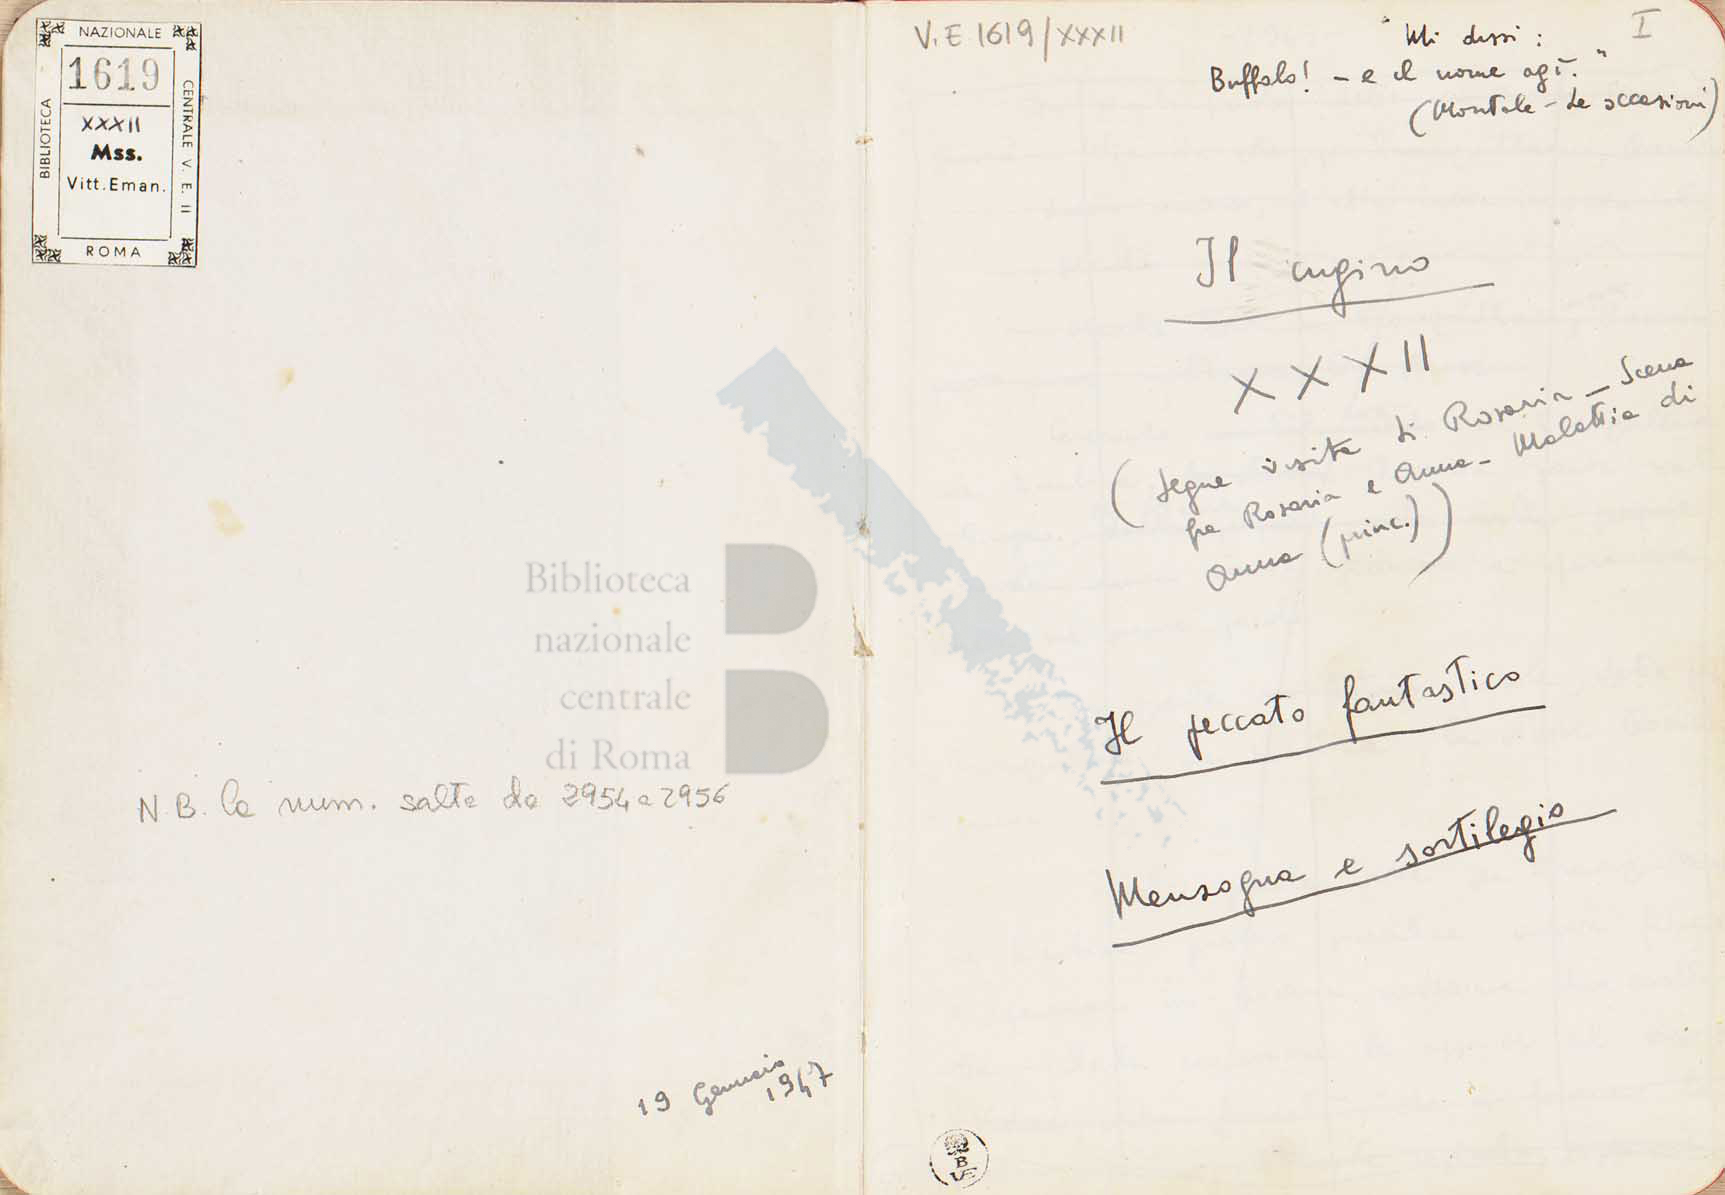 NAZIONALE
BIBLIOTECA
CENTRALE V. E. II
1619
XXXII
Mss.
Vitt.Eman.
ROMA
Biblioteca
nazionale
centrale
di Roma
N.B. la num. salta da 2954 a 2956
19 Gennaio
1947
V.E. 1619/XXXII
I
"Mi dissi:
Buffalo! – e il nome agì."
(Montale – Le occasioni)
Il cugino
XXXII
(Segue visita di Rosaria – Scena
fra Rosaria e Anna – Malattia di
Anna (princ.))
Il peccato fantastico
Menzogna e sortilegio
B